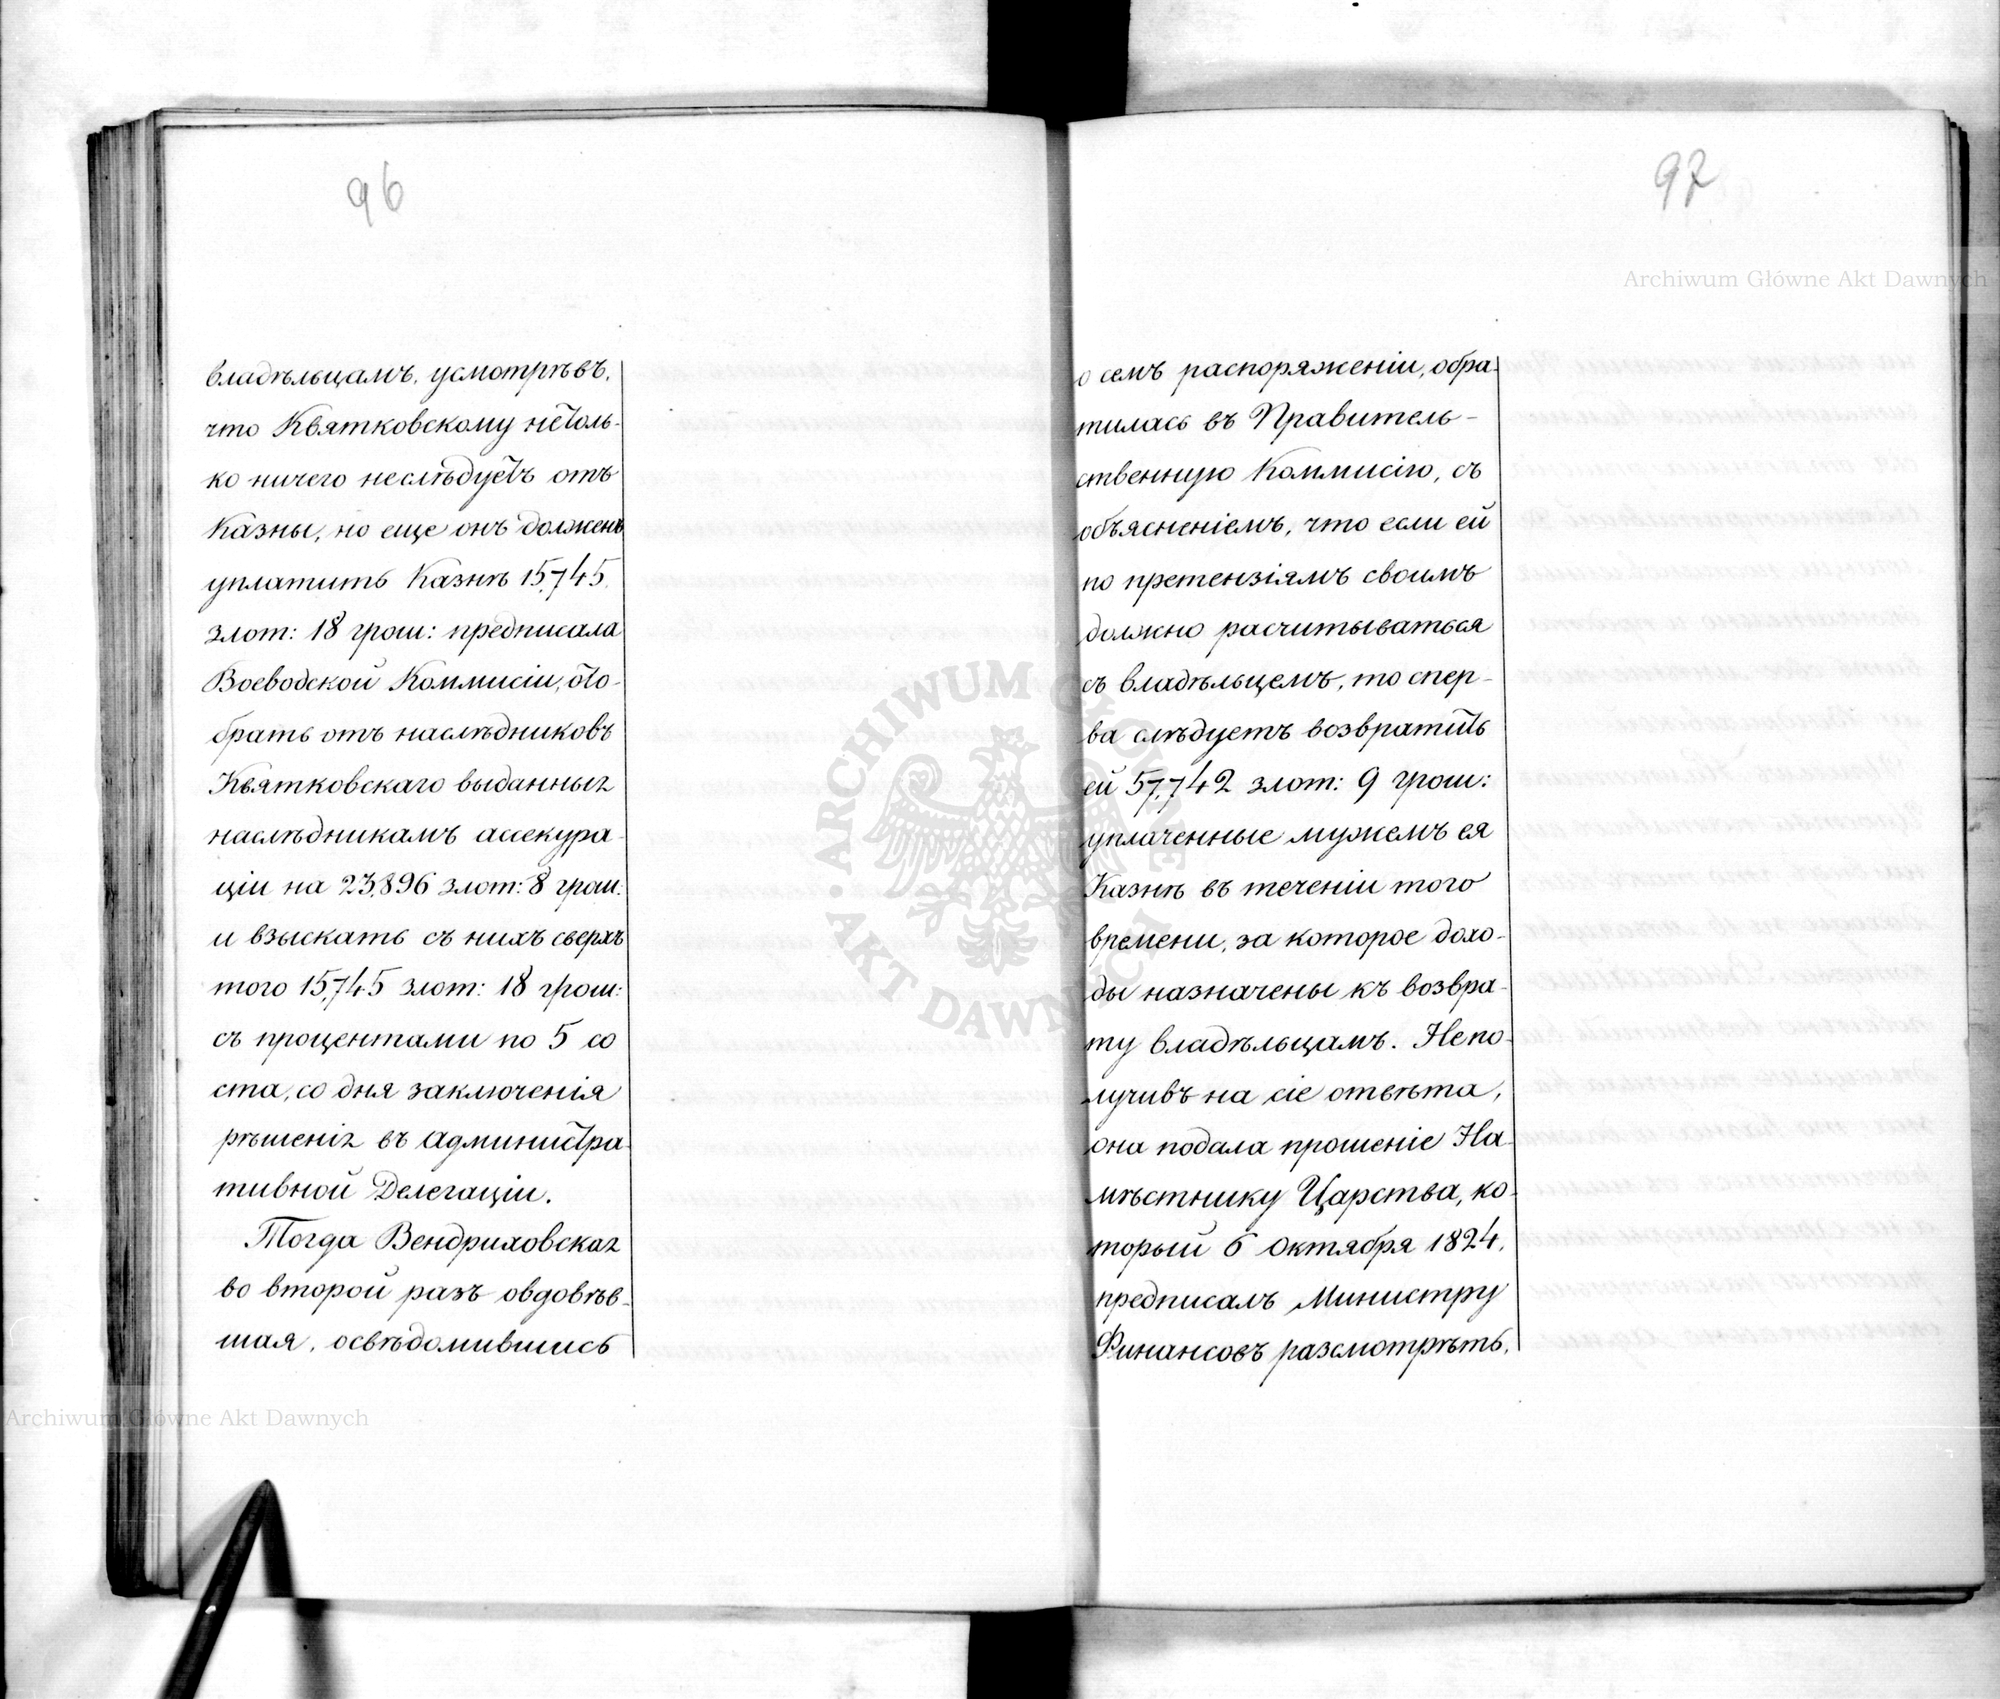 96
владѣльцамъ, усмотрѣвъ,
что Квятковскому нетоль-
ко ничего неслѣдуетъ отъ
Казны, но еще онъ долженъ
уплатить Казнѣ 15,745
злот: 18 грош: предписала
Воеводской Коммисіи, ото-
брать отъ наслѣдниковъ
Квятковскаго выданныя
наслѣдникамъ ассекура-
ціи на 23,896 злот: 8 грош:
и взыскать съ нихъ сверхъ
того 15,745 злот: 18 грош:
съ процентами по 5 со
ста, со дня заключенія
рѣшенія въ Администра-
тивной Делегаціи.
Тогда Вендриховская
во второй разъ овдовѣв-
шая, освѣдомившись
97
о семъ распоряженіи, обра-
тилась въ Правитель-
ственную Коммисію, съ
объясненіемъ, что если ей
по претензіямъ своимъ
должно расчитываться
съ владѣльцемъ, то спер-
ва слѣдуетъ возвратить
ей 57,742 злот: 9 грош:
уплаченные мужемъ ея
Казнѣ въ теченіи того
времени, за которое дохо-
ды назначены къ возвра-
ту владѣльцамъ. Непо-
лучивъ на сіе отвѣта,
она подала прошеніе На-
мѣстнику Царства, ко-
торый 6 Октября 1824,
предписалъ Министру
Финансовъ разсмотрѣть,
Archiwum Główne Akt Dawnych
ARCHIWUM GŁÓWNE AKT DAWNYCH
Archiwum Główne Akt Dawnych